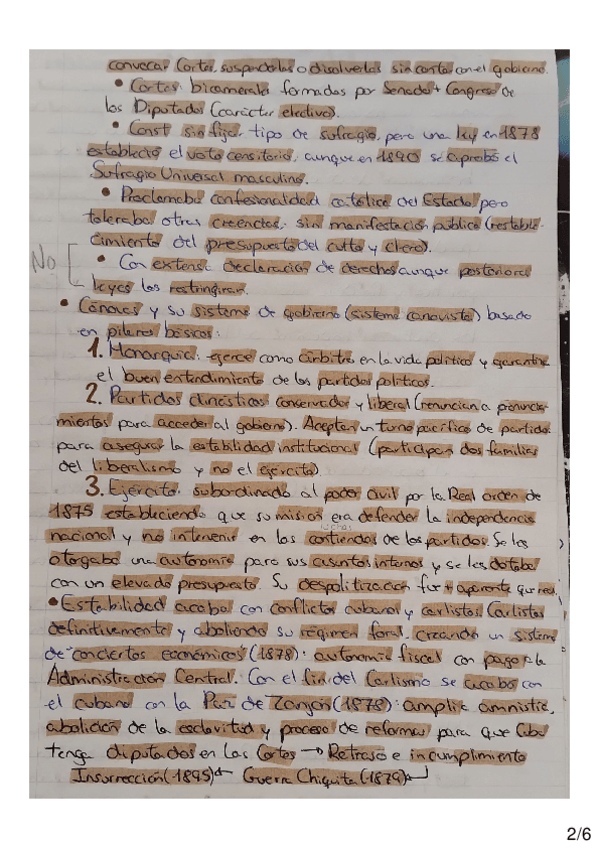 convocar Cortes, suspenderlas o disolverlas sin contar con el gobierno.
• Cortes: bicamerales formadas por Senado + Congreso de
los Diputados (carácter electivo).
• Const sin fijar tipo de sufragio, pero una ley en 1878
estableció el voto censitario, aunque en 1890 se aprobó el
Sufragio Universal masculino.
• Proclamaba confesionalidad católica del Estado pero
toleraba otras creencias, sin manifestación pública (restable-
cimiento del presupuesto del culto y clero).
No [ • Con extensa declaración de derechos aunque posteriores
leyes los restringiran.
• Cánovas y su sistema de gobierno (sistema canovista) basado
en pilares básicos:
1. Monarquía: ejerce como árbitro en la vida política y garantiza
el buen entendimiento de los partidos políticos.
2. Partidos dinásticos conservador y liberal (renuncian a pronuncia-
mientos para acceder al gobierno). Aceptan un turno pacífico de partidos
para asegurar la estabilidad institucional (participan dos familias
del liberalismo y no el ejército)
3. Ejército: subordinado al poder civil por la Real orden de
1875 estableciendo que su misión era defender la independencia
luchas
nacional y no intervenir en las contiendas de los partidos. Se les
otorgaba una autonomía para sus asuntos internos y se les dotaba
con un elevado presupuesto. Su despolitización fue + aparente que real.
• Estabilidad acaba con conflictos cubano y carlistas. Carlistas
definitivamente y aboliendo su régimen foral, creando un sistema
de "conciertos económicos" (1878): autonomía fiscal con pago a la
Administración Central. Con el fin del Carlismo se acabó con
el cubano con la Paz de Zanjón (1878): amplia amnistía,
abolición de la esclavitud y proceso de reformas para que Cuba
tenga diputados en las Cortes → Retraso e incumplimiento
Insurrección (1895) ← Guerra Chiquita (1879) ←
2/6